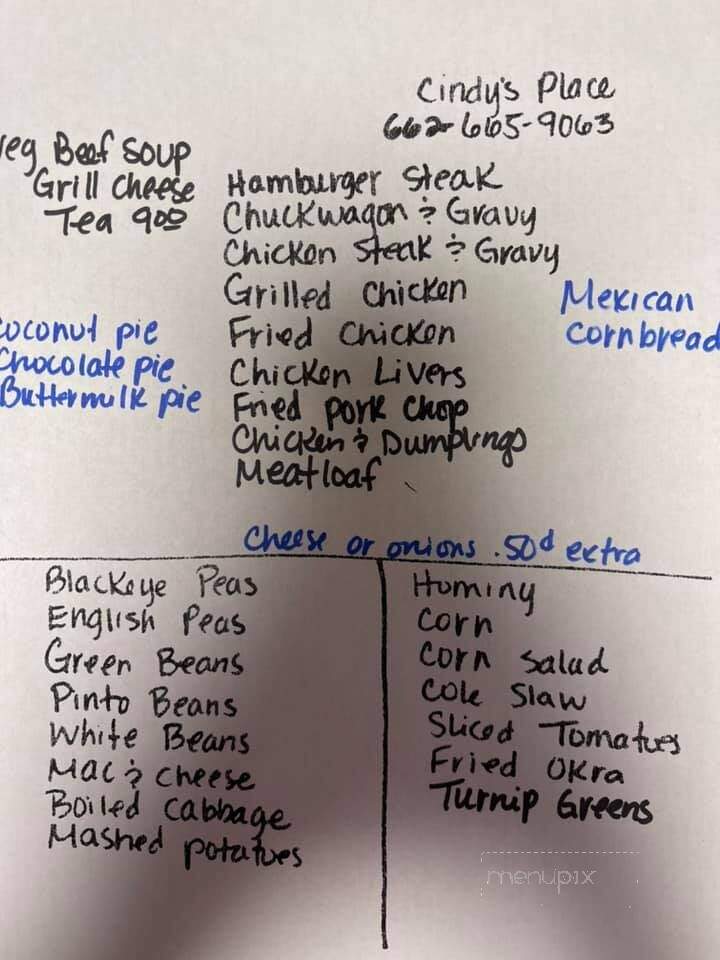 Cindy's Place
662-665-9063
veg Beef Soup
Grill cheese
Tea 9.00
Hamburger Steak
Chuckwagon & Gravy
Chicken Steak & Gravy
Grilled Chicken
Fried Chicken
Chicken Livers
Fried Pork Chop
Chicken & Dumplings
Meatloaf
Mexican
Cornbread
Coconut pie
Chocolate pie
Buttermilk pie
Cheese or onions .50¢ extra
Blackeye Peas
English Peas
Green Beans
Pinto Beans
White Beans
Mac & Cheese
Boiled Cabbage
Mashed potatoes
Hominy
Corn
Corn Salad
Cole Slaw
Sliced Tomatoes
Fried Okra
Turnip Greens
menupix